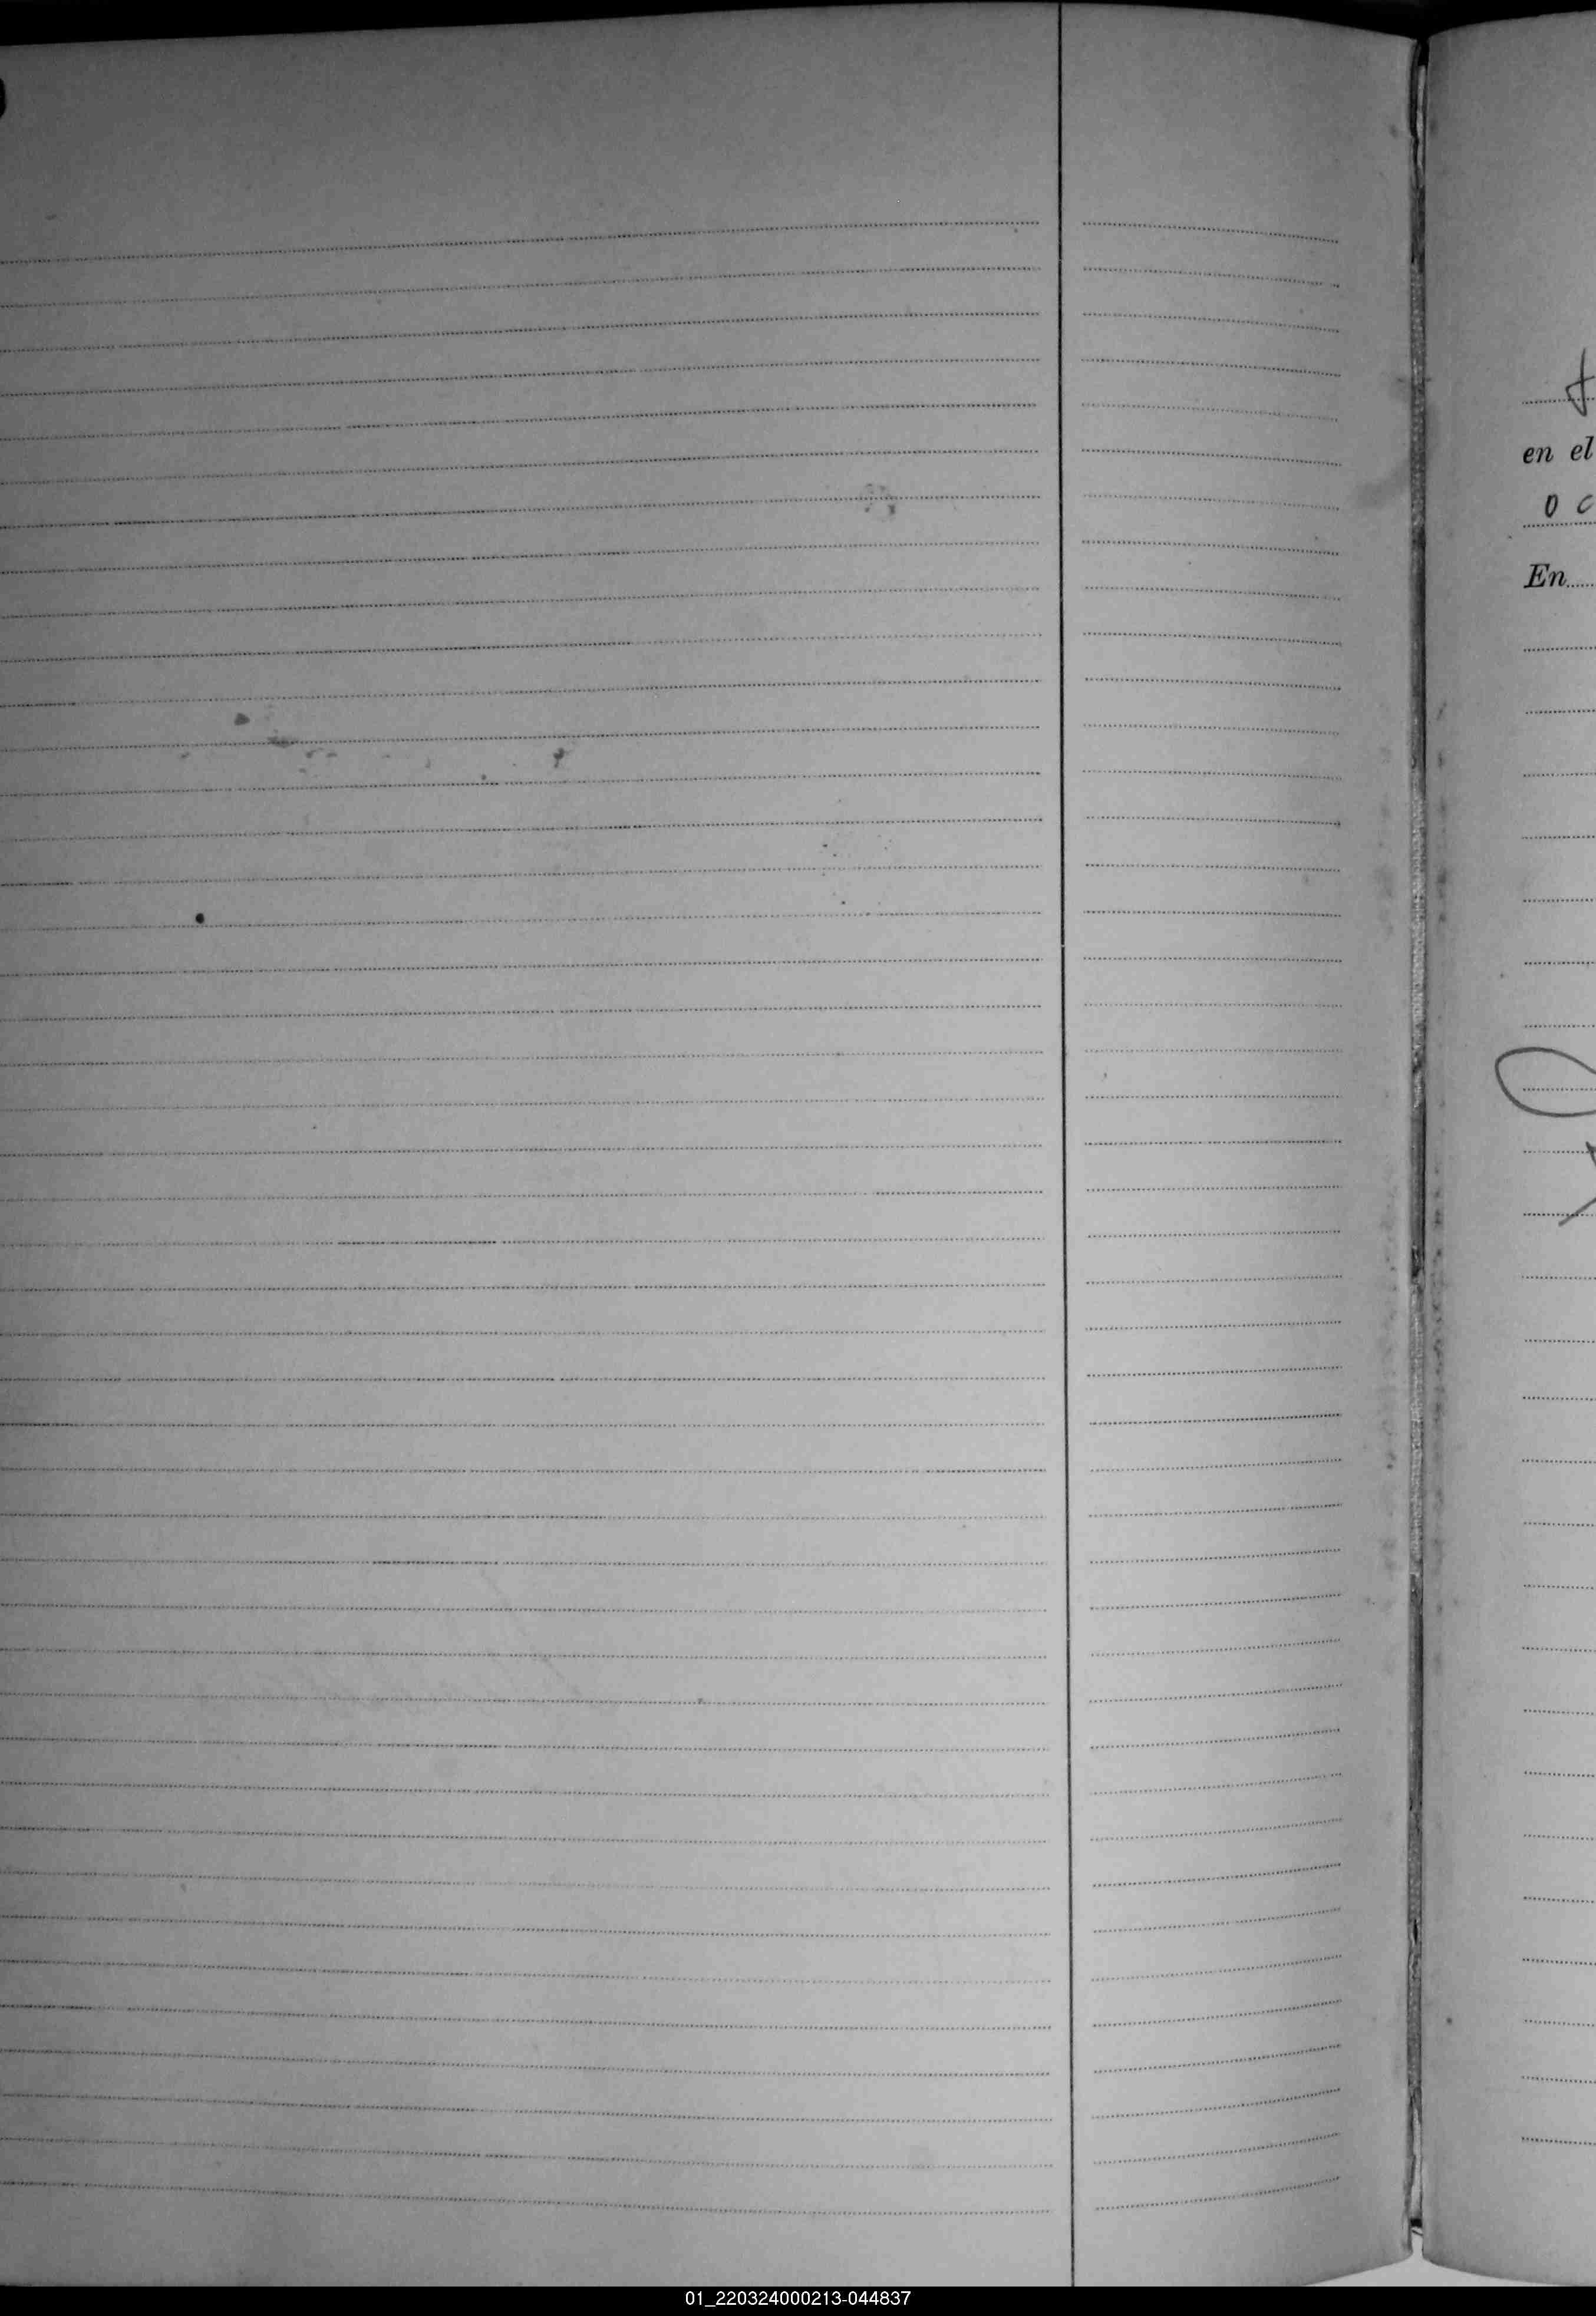 en el
o c
En
01_220324000213-044837